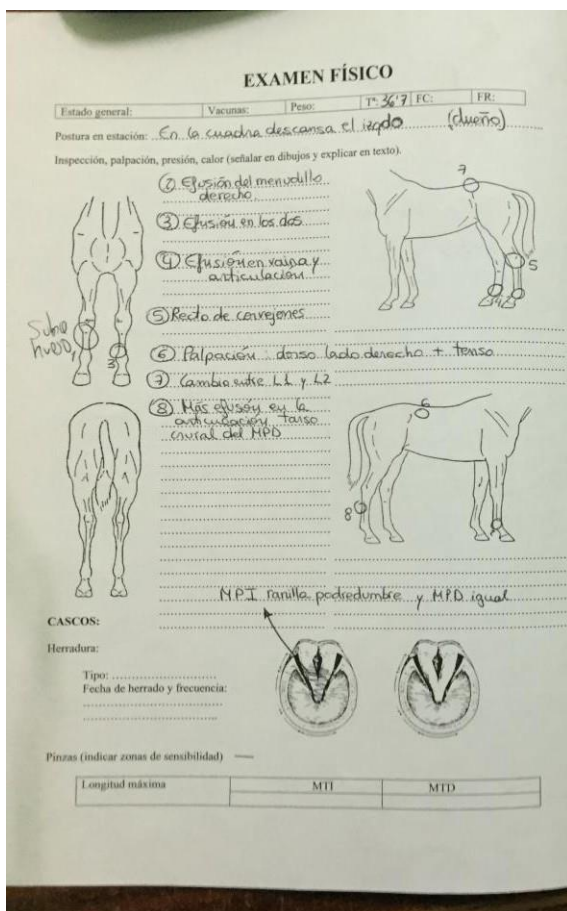 EXAMEN FÍSICO
Estado general: Vacunas: Peso: Tª: 36'7 FC: FR:
Postura en estación: En la cuadra descansa el izqdo (dueño)
Inspección, palpación, presión, calor (señalar en dibujos y explicar en texto).
② Efusión del menudillo
derecho
③ Efusión en los dos
④ Efusión en vaina y
articulación
⑤ Recto de corvejones
⑥ Palpación: dorso lado derecho + tenso
⑦ Cambio entre L1 y L2
⑧ Más efusión en la
articulación tarso
crural del MPD
Sobre
hueso
3
7
5
4
6
8
MPI ranilla podredumbre y MPD igual
CASCOS:
Herradura:
Tipo:
Fecha de herrado y frecuencia:
Pinzas (indicar zonas de sensibilidad) —
Longitud máxima MTI MTD